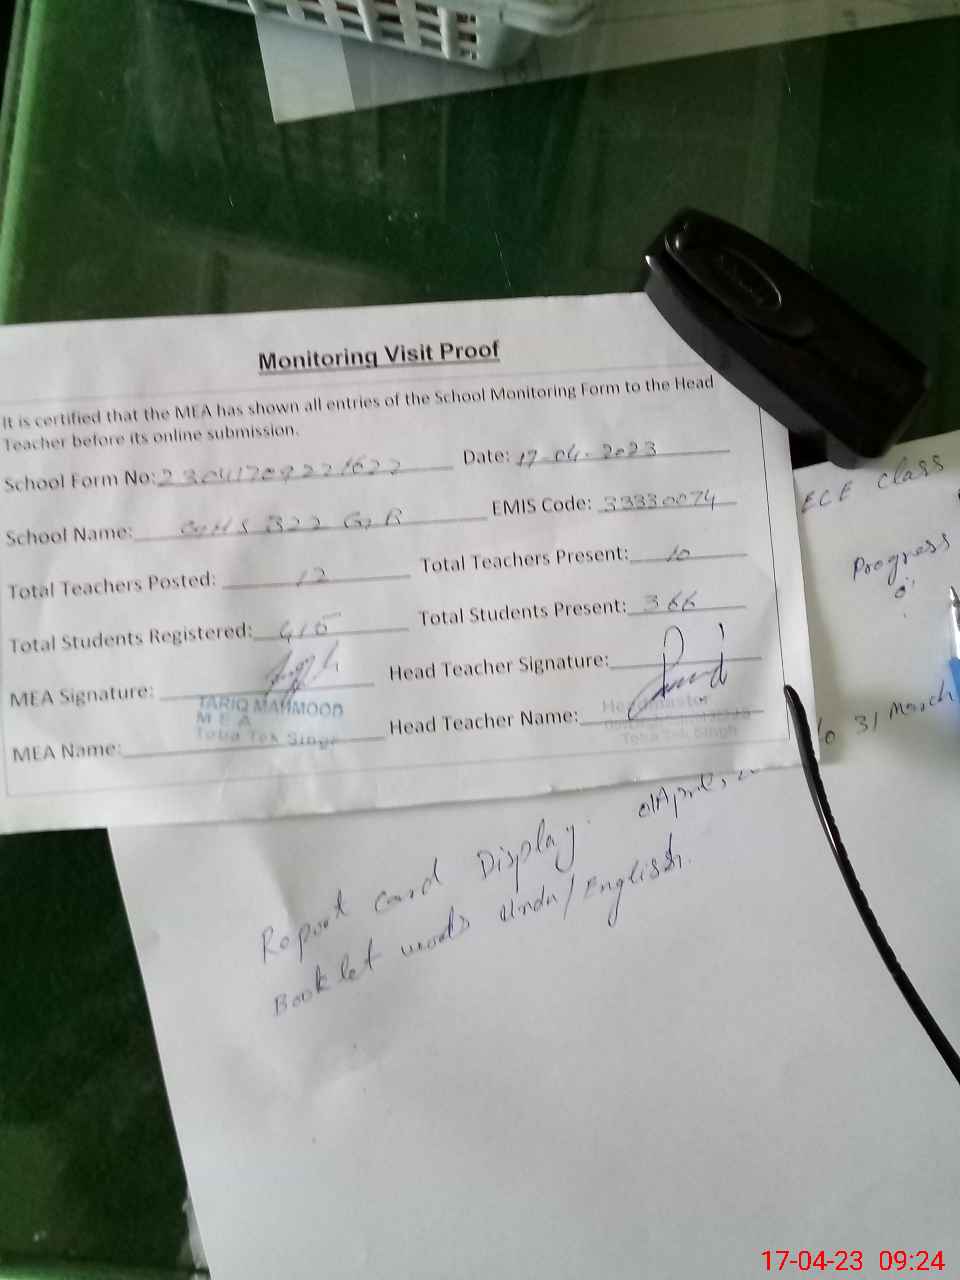 Monitoring Visit Proof
It is certified that the MEA has shown all entries of the School Monitoring Form to the Head
Teacher before its online submission.
School Form No: Date: 17-04-2023
School Name: GHS 322 G,B EMIS Code: 33330074
Total Teachers Posted: 12 Total Teachers Present: 10
Total Students Registered: 415 Total Students Present: 366
MEA Signature: Head Teacher Signature:
TARIQ MAHMOOD
M E A
Toba Tek Singh
MEA Name: Head Teacher Name:
Headmaster
Toba Tek Singh
ECE Class
Progress
to 31 March
Report Card Display. 01 April,
Booklet words Urdu/English.
17-04-23 09:24